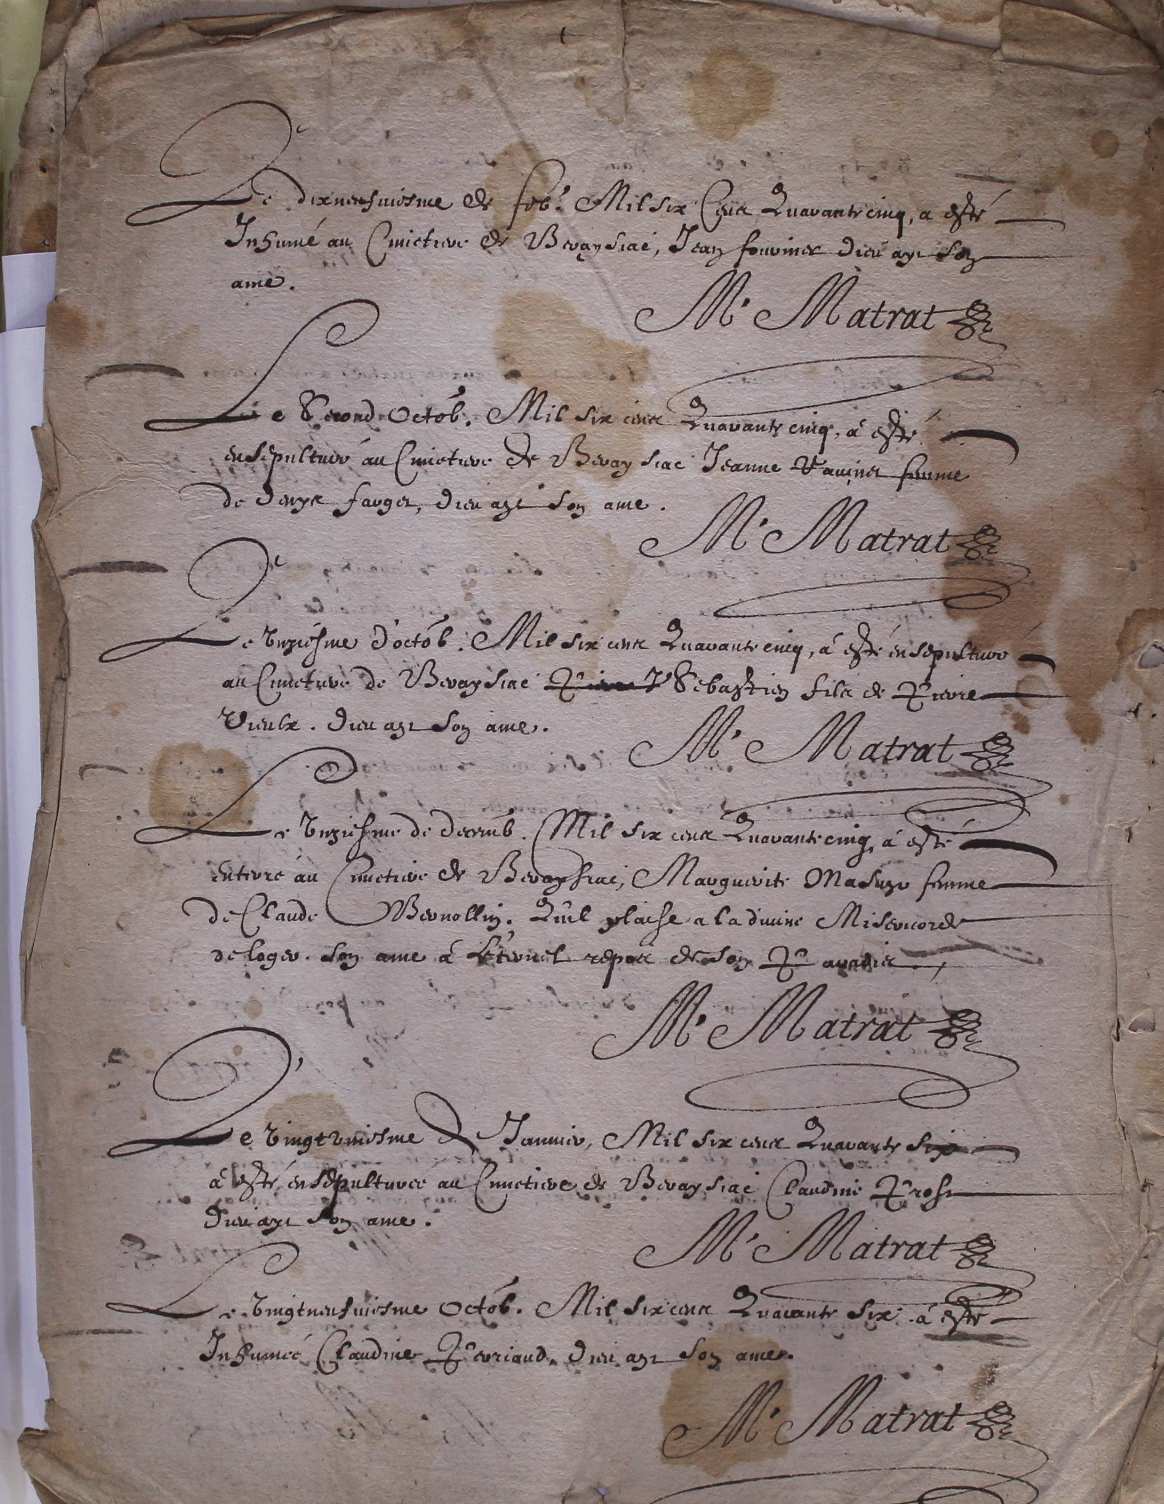 Le dixneufuiesme de feb. Mil six Cens Quarante cinq, a esté
Inhumé au Cimetiere de Beraysiac, Jean fournier dieu aye son
ame.
M. Matrat
Le Second Octob. Mil six cens Quarante cinq, a esté
ensepulturé au Cimetiere de Beraysiac Jeanne femme
de denys farget, dieu aye son ame.
M. Matrat
Le unziesme d'octob. Mil six cens Quarante cinq, a esté ensepulturé
au Cimetiere de Beraysiac Sebastien fils de Pierre
Vieulx. dieu aye son ame.
M. Matrat
Le unziesme de decemb. Mil six cens Quarante cinq, a esté
enterré au Cimetiere de Beraysiac, Marguerite Masuyr femme
de Claude Bernollin. Quil plaise a la diuine Misericorde
de loger son ame a L'eternel repos de son Paradis,
M. Matrat
Le vingtuniesme de Januier, Mil six cens Quarante six
a esté ensepulturee au Cimetiere de Beraysiac Claudine Prost
dieu aye son ame.
M. Matrat
Le vingtneufuiesme Octob. Mil six cens Quarante six. a esté
Inhumée Claudine Perriaud, dieu aye son ame.
M. Matrat